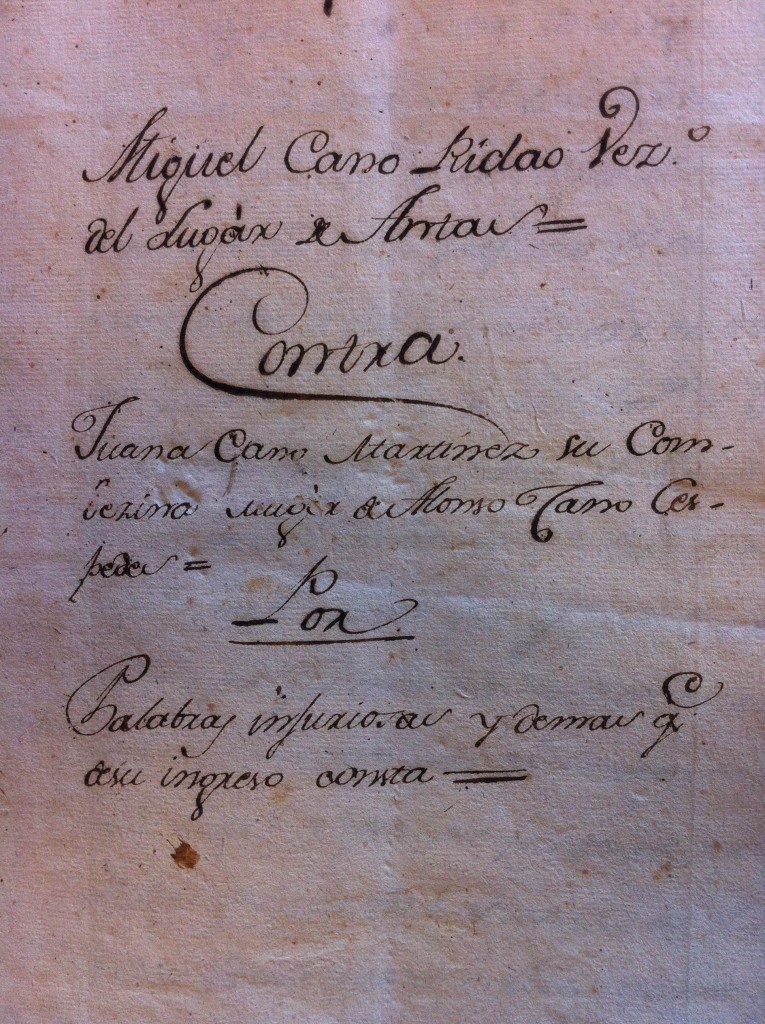 Miguel Cano Ridao Vez.º
del Lugàr de Antas =
Contra.
Juana Cano Martinez su Com-
vezina muger de Alonso Cano Ces-
pedes =
Por
Palabras injuriosas y demas q.e
desu ingreso consta =